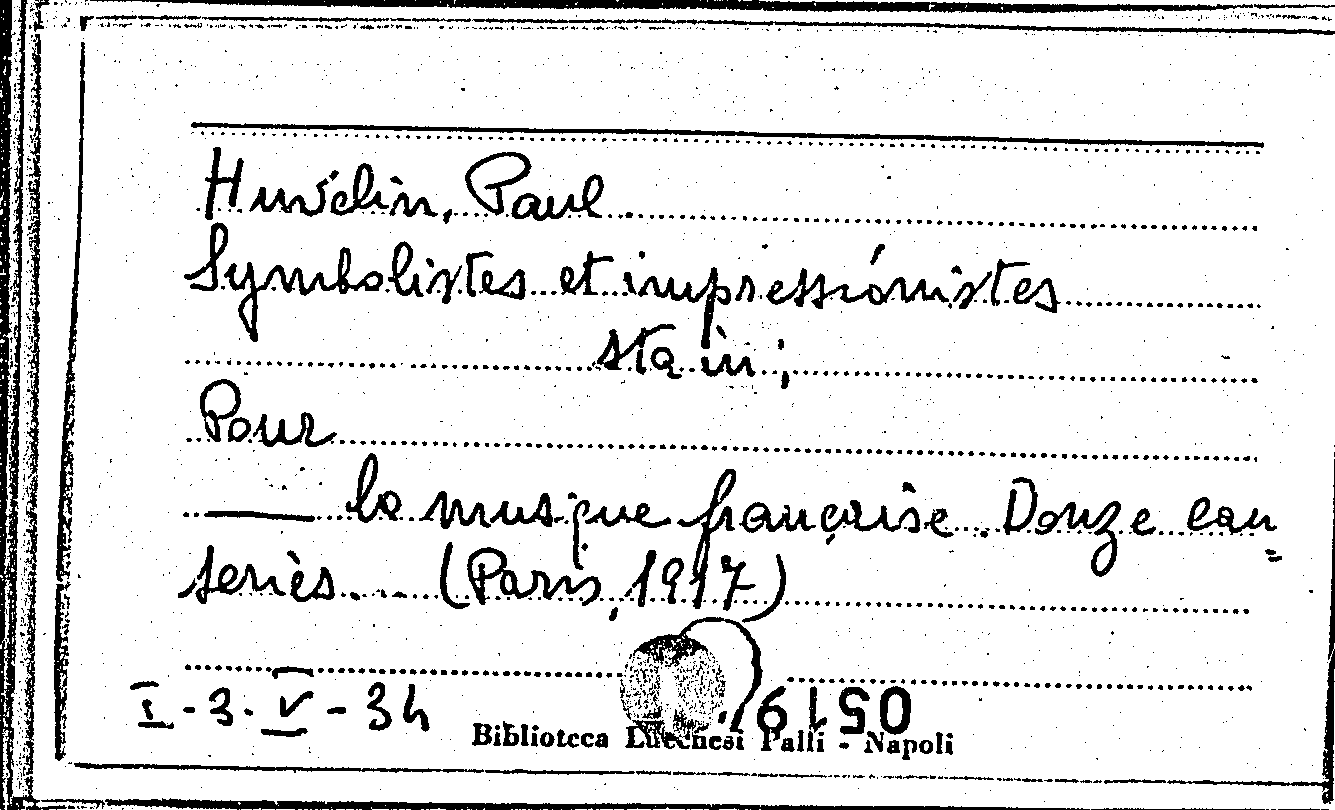 Huvelin, Paul
Symbolistes et impressionistes
sta in;
Pour
—— la musique française. Douze cau=
series... (Paris, 1917)
I-3.V-34
Biblioteca Lucchesi Palli - Napoli